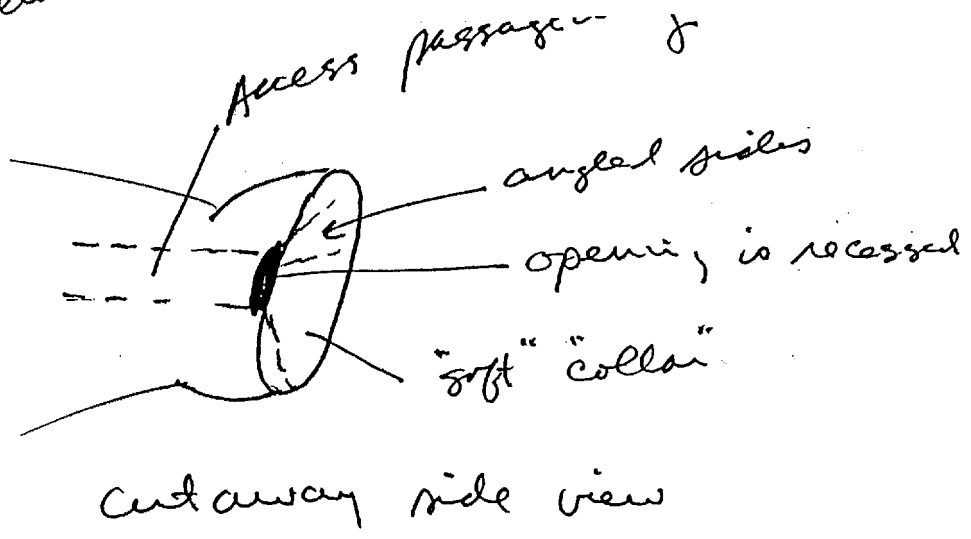 Access passage
angled sides
opening is recessed
"soft" "collar"
cutaway side view